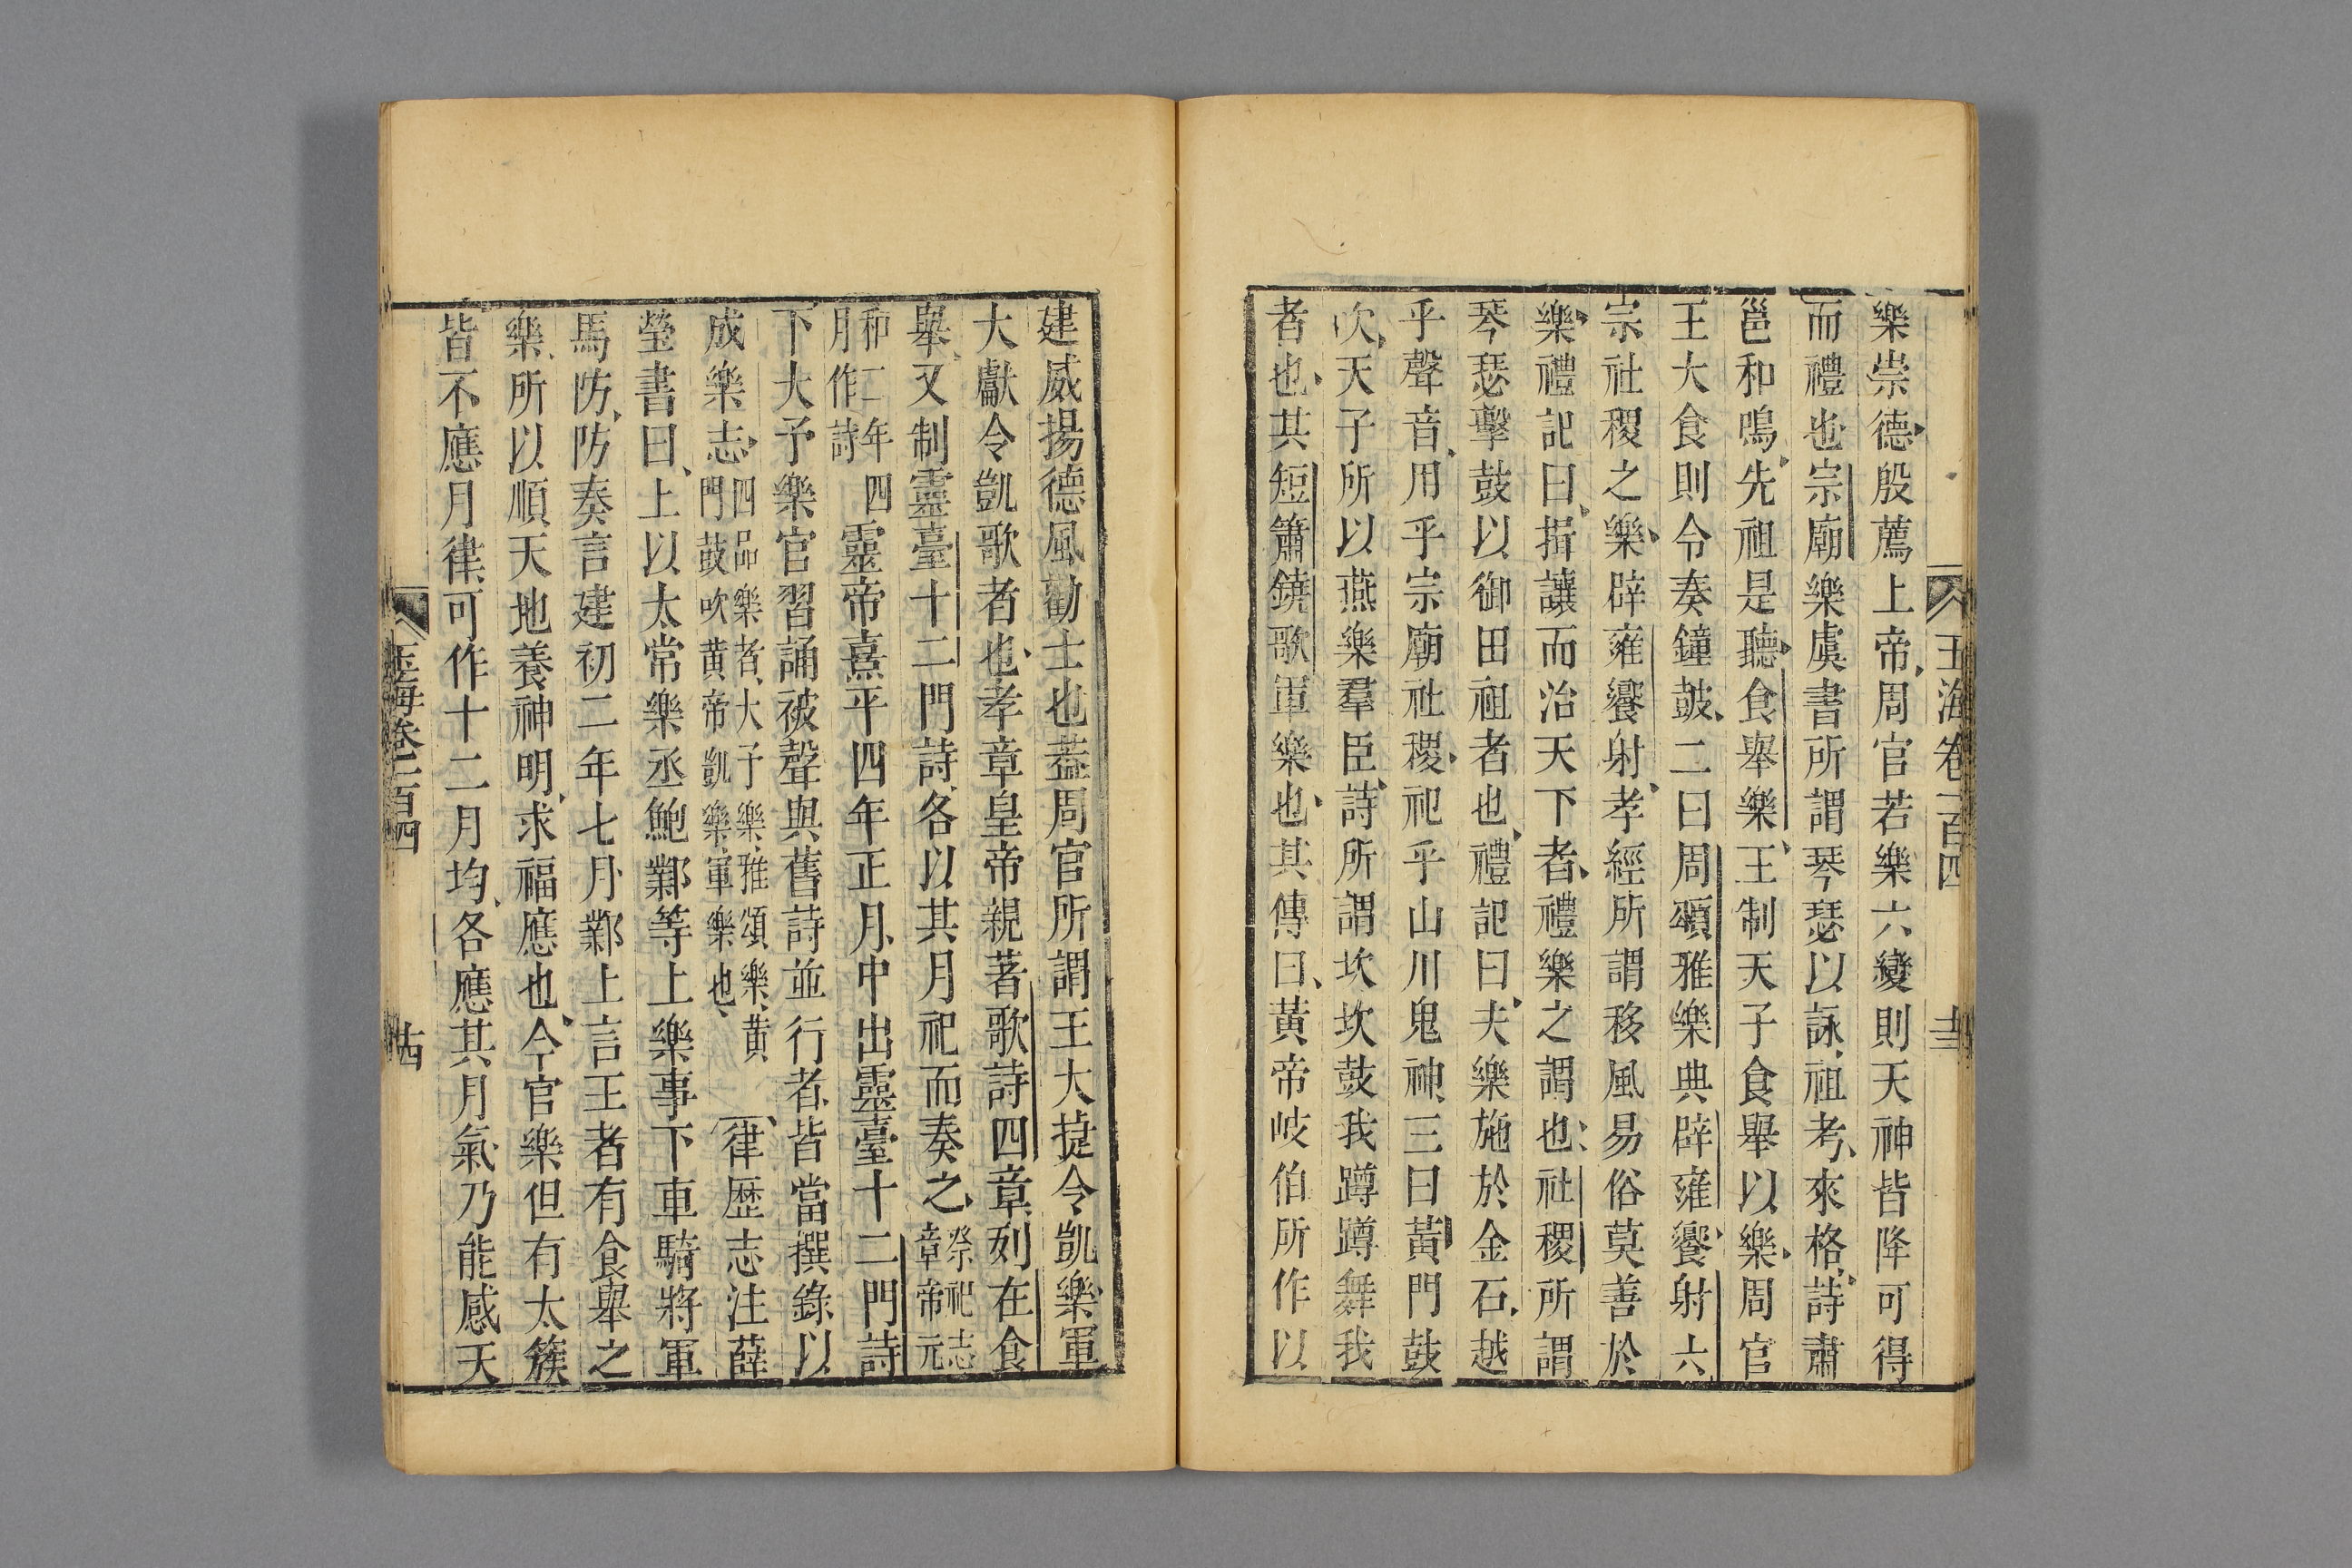 玉海卷一百四 十三
樂崇德殷薦上帝周官若樂六變則天神皆降可得
而禮也宗廟樂虞書所謂琴瑟以詠祖考來格詩肅
邕和鳴先祖是聽食舉樂王制天子食舉以樂周官
王大食則令奏鐘鼓二曰周頌雅樂典辟雍饗射六
宗社稷之樂辟雍饗射孝經所謂移風易俗莫善於
樂禮記曰揖讓而治天下者禮樂之謂也社稷所謂
琴瑟擊鼓以御田祖者也禮記曰夫樂施於金石越
乎聲音用乎宗廟社稷祀乎山川鬼神三曰黃門鼓
吹天子所以燕樂羣臣詩所謂坎坎鼓我蹲蹲舞我
者也其短簫鐃歌軍樂也其傳曰黃帝岐伯所作以
建威揚德風勸士也蓋周官所謂王大捷令凱樂軍
大獻令凱歌者也孝章皇帝親著歌詩四章列在食
舉又制靈臺十二門詩各以其月祀而奏之祭祀志章帝元
和二年四月作詩靈帝熹平四年正月中出靈臺十二門詩
下大予樂官習誦被聲與舊詩並行者皆當撰錄以
成樂志四品樂者大予樂雅頌樂黃門鼓吹黃帝凱樂軍樂也律歷志注薛
瑩書曰上以太常樂丞鮑鄴等上樂事下車騎將軍
馬防防奏言建初二年七月鄴上言王者有食舉之
樂所以順天地養神明求福應也今官樂但有太簇
皆不應月律可作十二月均各應其月氣乃能感天
玉海卷一百四 十四